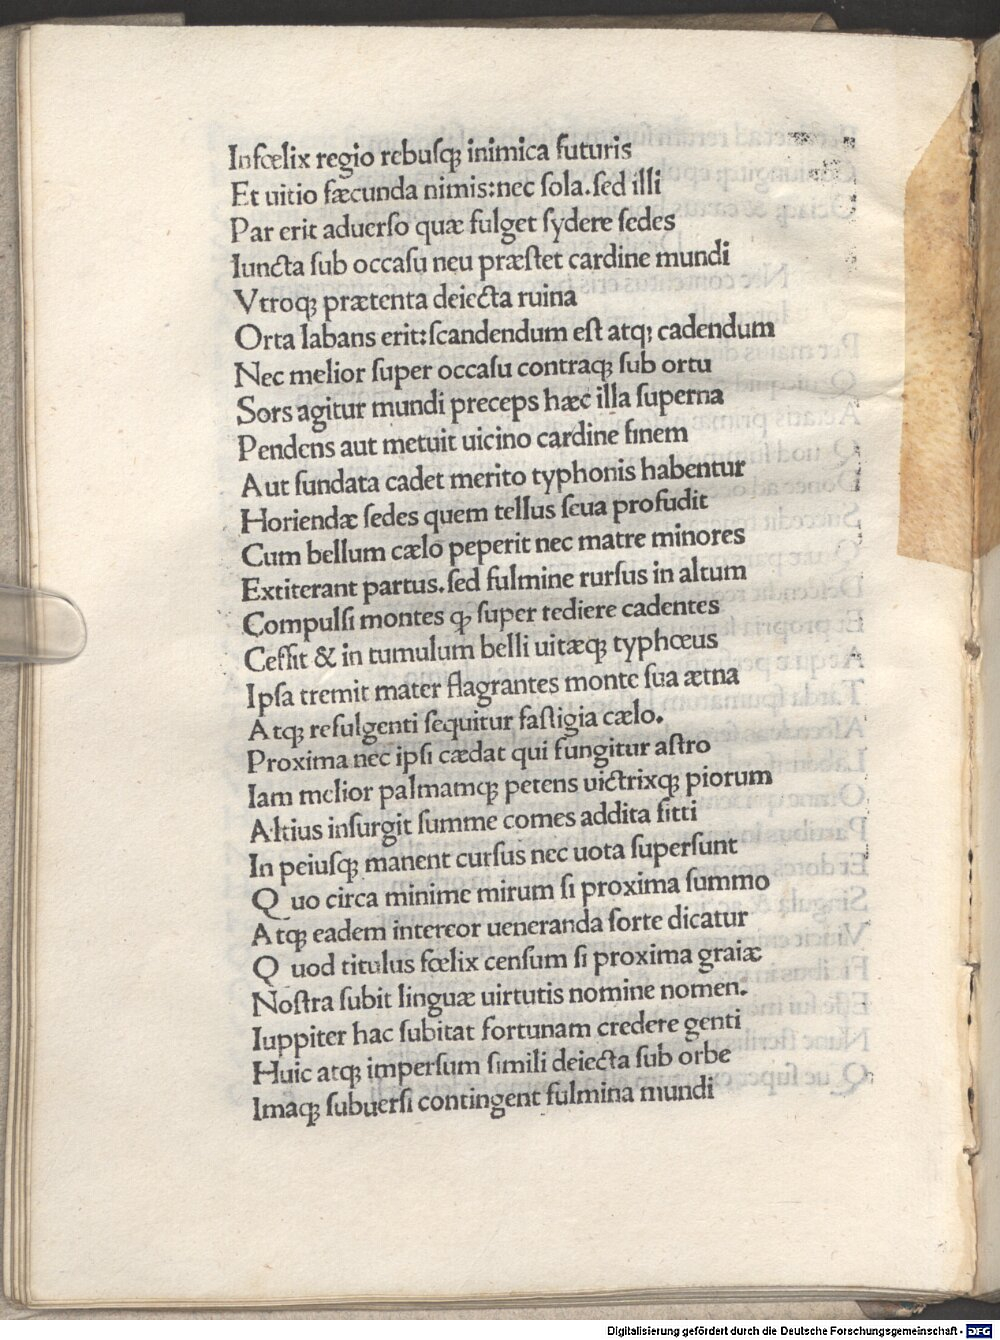 Infœlix regio rebuſqꝫ inimica futuris
Et uitio fæcunda nimis:nec ſola.ſed illi
Par erit aduerſo quæ fulget ſydere ſedes
Iuncta ſub occaſu neu præſtet cardine mundi
Vtroqꝫ prætenta deiecta ruina
Orta labans erit:ſcandendum eſt atqꝫ cadendum
Nec melior ſuper occaſu contraqꝫ ſub ortu
Sors agitur mundi preceps hæc illa ſuperna
Pendens aut metuit uicino cardine finem
Aut fundata cadet merito typhonis habentur
Horiendæ ſedes quem tellus ſeua profudit
Cum bellum cælo peperit nec matre minores
Extiterant partus.ſed fulmine rurſus in altum
Compulſi montes qꝫ ſuper rediere cadentes
Ceſſit & in tumulum belli uitæqꝫ typhœus
Ipſa tremit mater flagrantes monte ſua ætna
Atqꝫ refulgenti ſequitur faſtigia cælo.
Proxima nec ipſi cædat qui fungitur aſtro
Iam melior palmamqꝫ petens uictrixqꝫ piorum
Altius inſurgit ſumme comes addita fitti
In peiuſqꝫ manent curſus nec uota ſuperſunt
Quo circa minime mirum ſi proxima ſummo
Atqꝫ eadem intereor ueneranda ſorte dicatur
Quod titulus fœlix cenſum ſi proxima graiæ
Noſtra ſubit linguæ uirtutis nomine nomen.
Iuppiter hac ſubitat fortunam credere genti
Huic atqꝫ imperſum ſimili deiecta ſub orbe
Imaqꝫ ſubuerſi contingent fulmina mundi
Digitalisierung gefördert durch die Deutsche Forschungsgemeinschaft - DFG